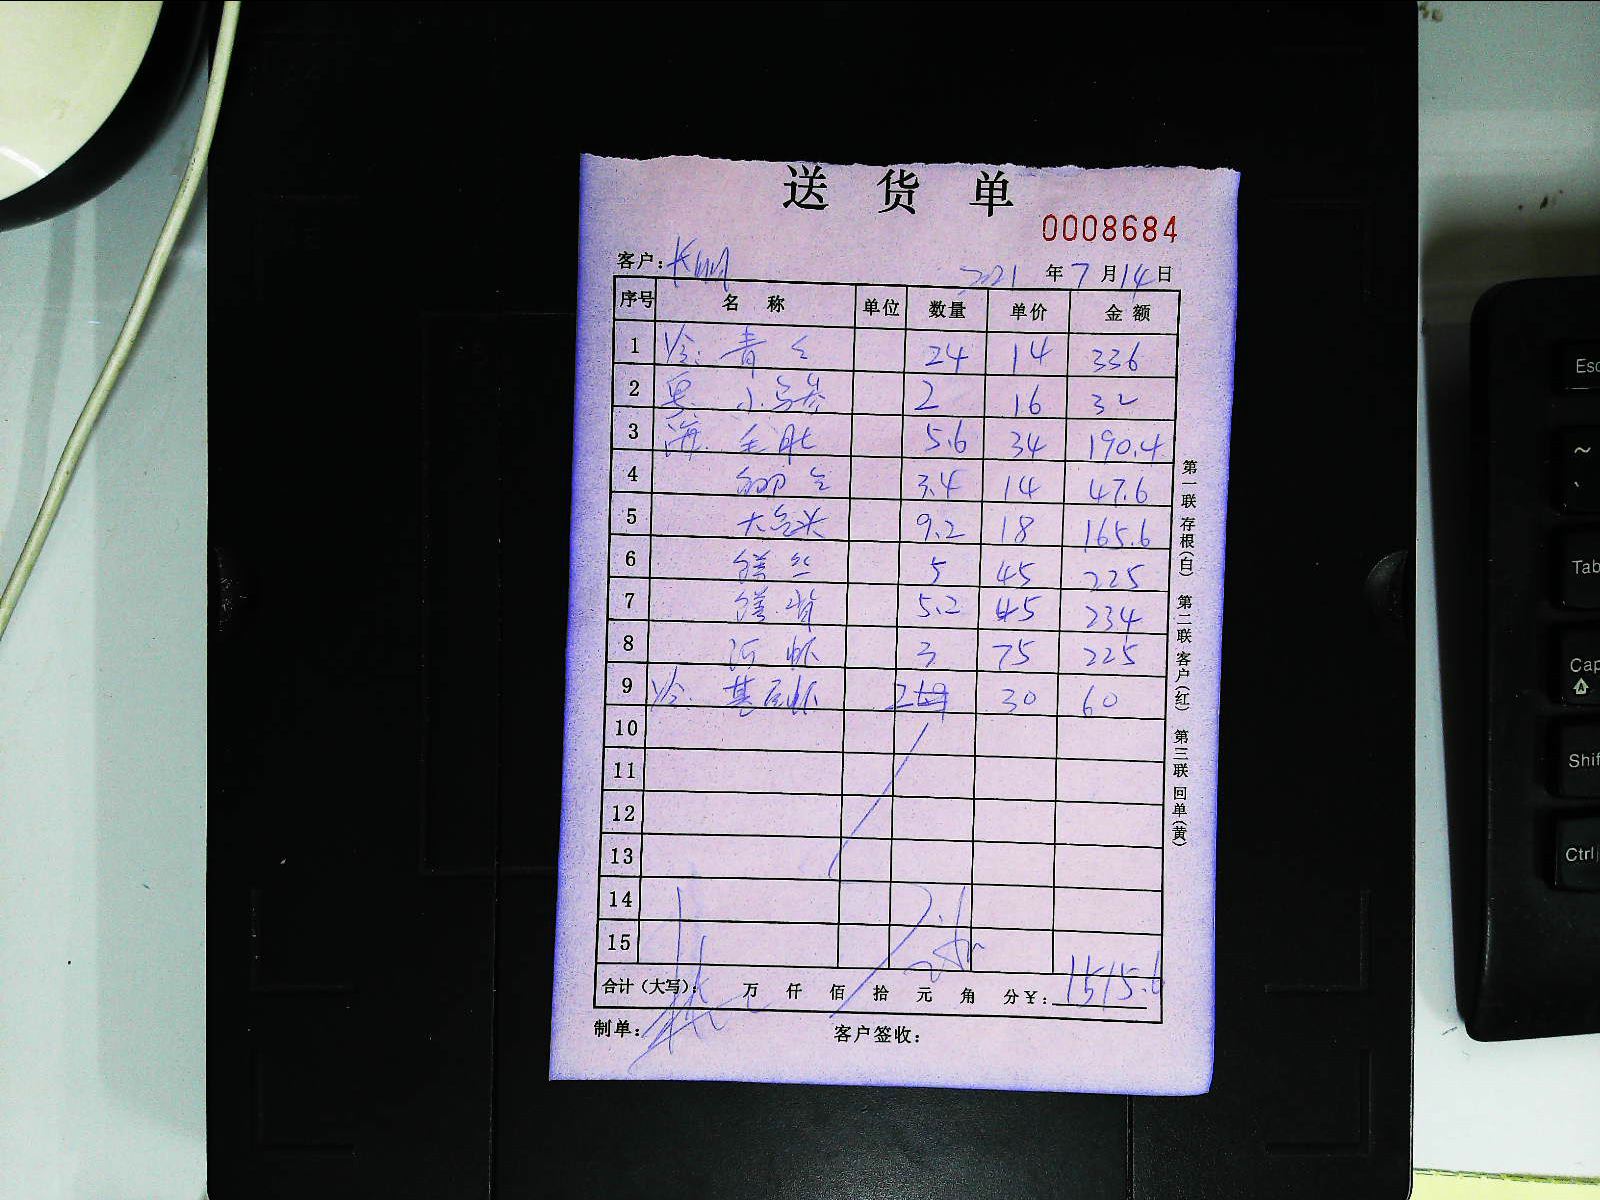 送货单
0008684
客户: 2021年7月14日
序号 名称 单位 数量 单价 金额
1 冷: 青 24 14 336
2 小乌参 2 16 32
3 海. 毛肚 5.6 34 190.4
4 3.4 14 47.6
5 大头 9.2 18 165.6
6 丝 5 45 225
7 背 5.2 45 234
8 3 75 225
9 冷: 基 2 30 60
10
11
12
13
14
15
合计(大写): 万 仟 佰 拾 元 角 分 ¥: 1515.6
制单: 客户签收:
第一联 存根(白) 第二联 客户(红) 第三联 回单(黄)
Esc
~
`
Tab
Cap
Shif
Ctrl